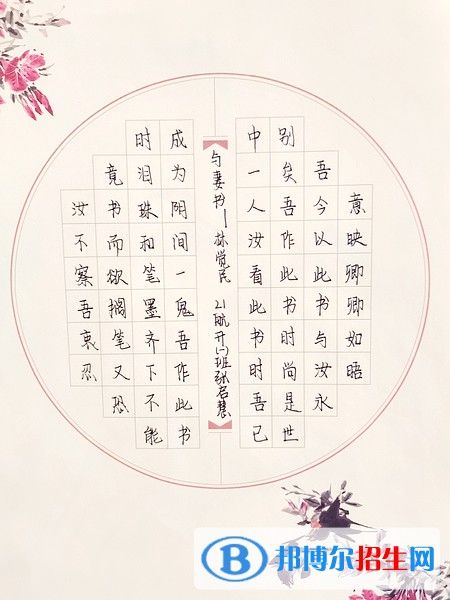 意映卿卿如晤
吾今以此书与汝永
别矣吾作此书时尚是世
中一人汝看此书时吾已
与妻书—林觉民 21航开(一)班张启慧
成为阴间一鬼吾作此书
时泪珠和笔墨齐下不能
竟书而欲搁笔又恐
汝不察吾衷忍
B 邦博尔招生网